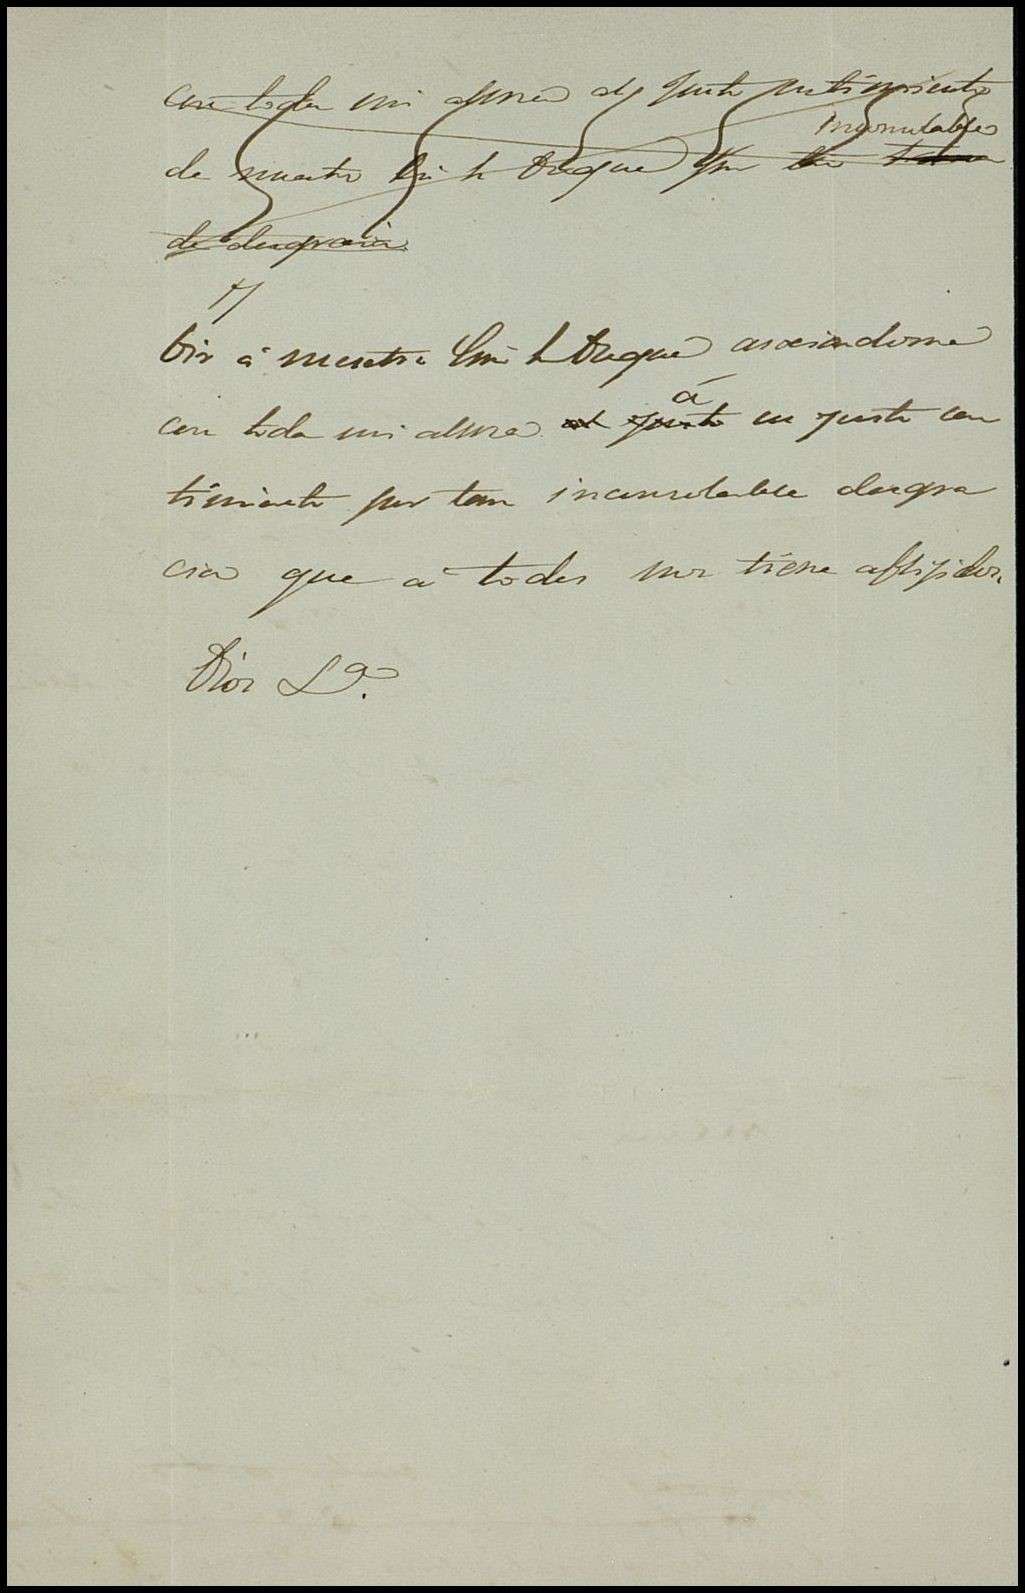 con toda mi alma al justo sentimiento
inconsolable
de nuestro Sor el Duque por
de desgracia
á nuestro Sor el Duque asociandome
á
con toda mi alma al justo su justo sen
timiento por tan inconsolable desgra
cia que á todos nos tiene aflijidos.
Dios